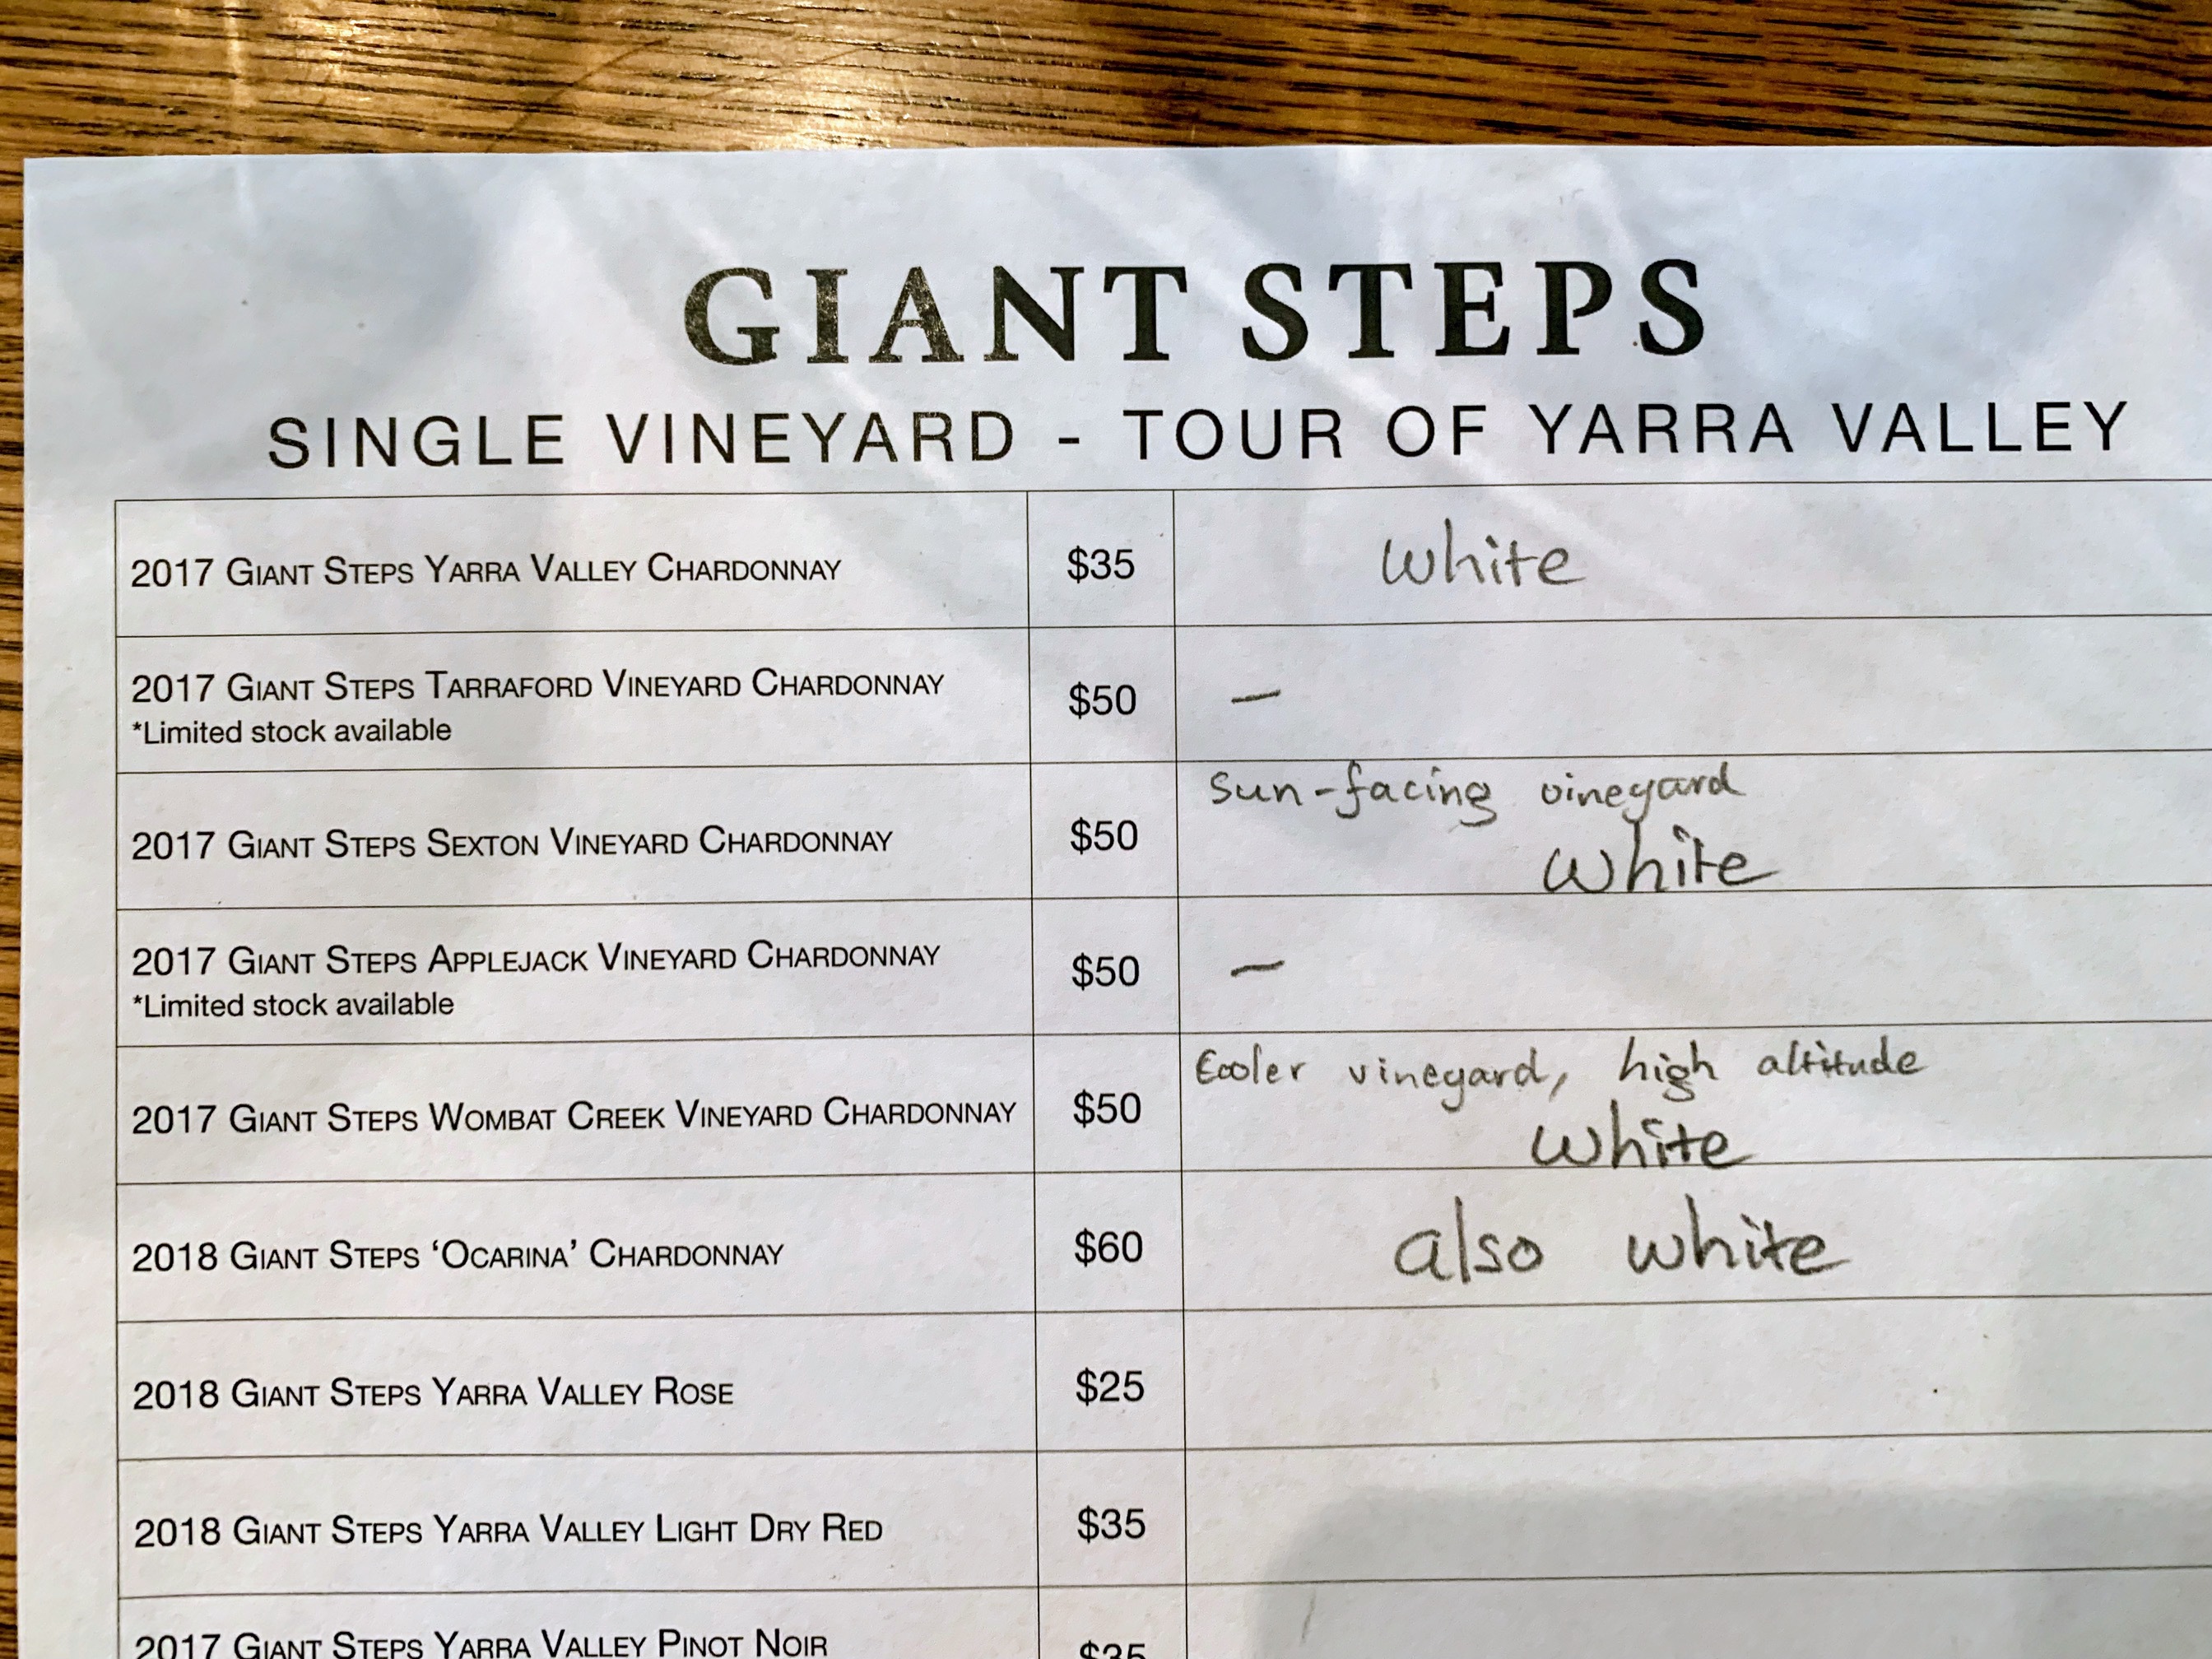 GIANT STEPS
SINGLE VINEYARD - TOUR OF YARRA VALLEY
2017 GIANT STEPS YARRA VALLEY CHARDONNAY $35 White
2017 GIANT STEPS TARRAFORD VINEYARD CHARDONNAY
*Limited stock available
$50 –
2017 GIANT STEPS SEXTON VINEYARD CHARDONNAY $50
Sun-facing vineyard
White
2017 GIANT STEPS APPLEJACK VINEYARD CHARDONNAY
*Limited stock available
$50 –
2017 GIANT STEPS WOMBAT CREEK VINEYARD CHARDONNAY $50
Cooler vineyard, high altitude
White
2018 GIANT STEPS ‘OCARINA’ CHARDONNAY $60 also white
2018 GIANT STEPS YARRA VALLEY ROSE $25
2018 GIANT STEPS YARRA VALLEY LIGHT DRY RED $35
2017 GIANT STEPS YARRA VALLEY PINOT NOIR $35